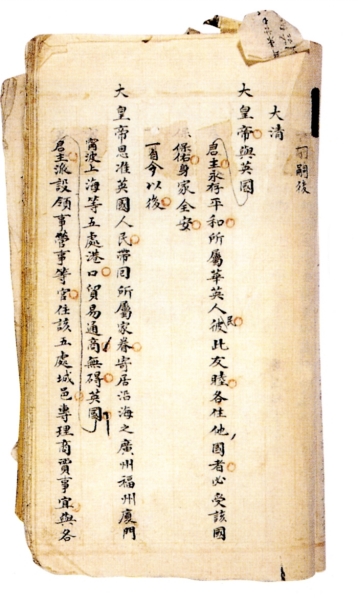 嗣後
大清
大皇帝與英國
君主永存平和所屬華英人民彼此友睦各住他國者必受該國
保佑身家全安
一自今以後
大皇帝恩准英國人民帶同所屬家眷寄居沿海之廣州福州廈門
甯波上海等五處港口貿易通商無礙英國
君主派設領事管事等官住該五處城邑專理商賈事宜與各